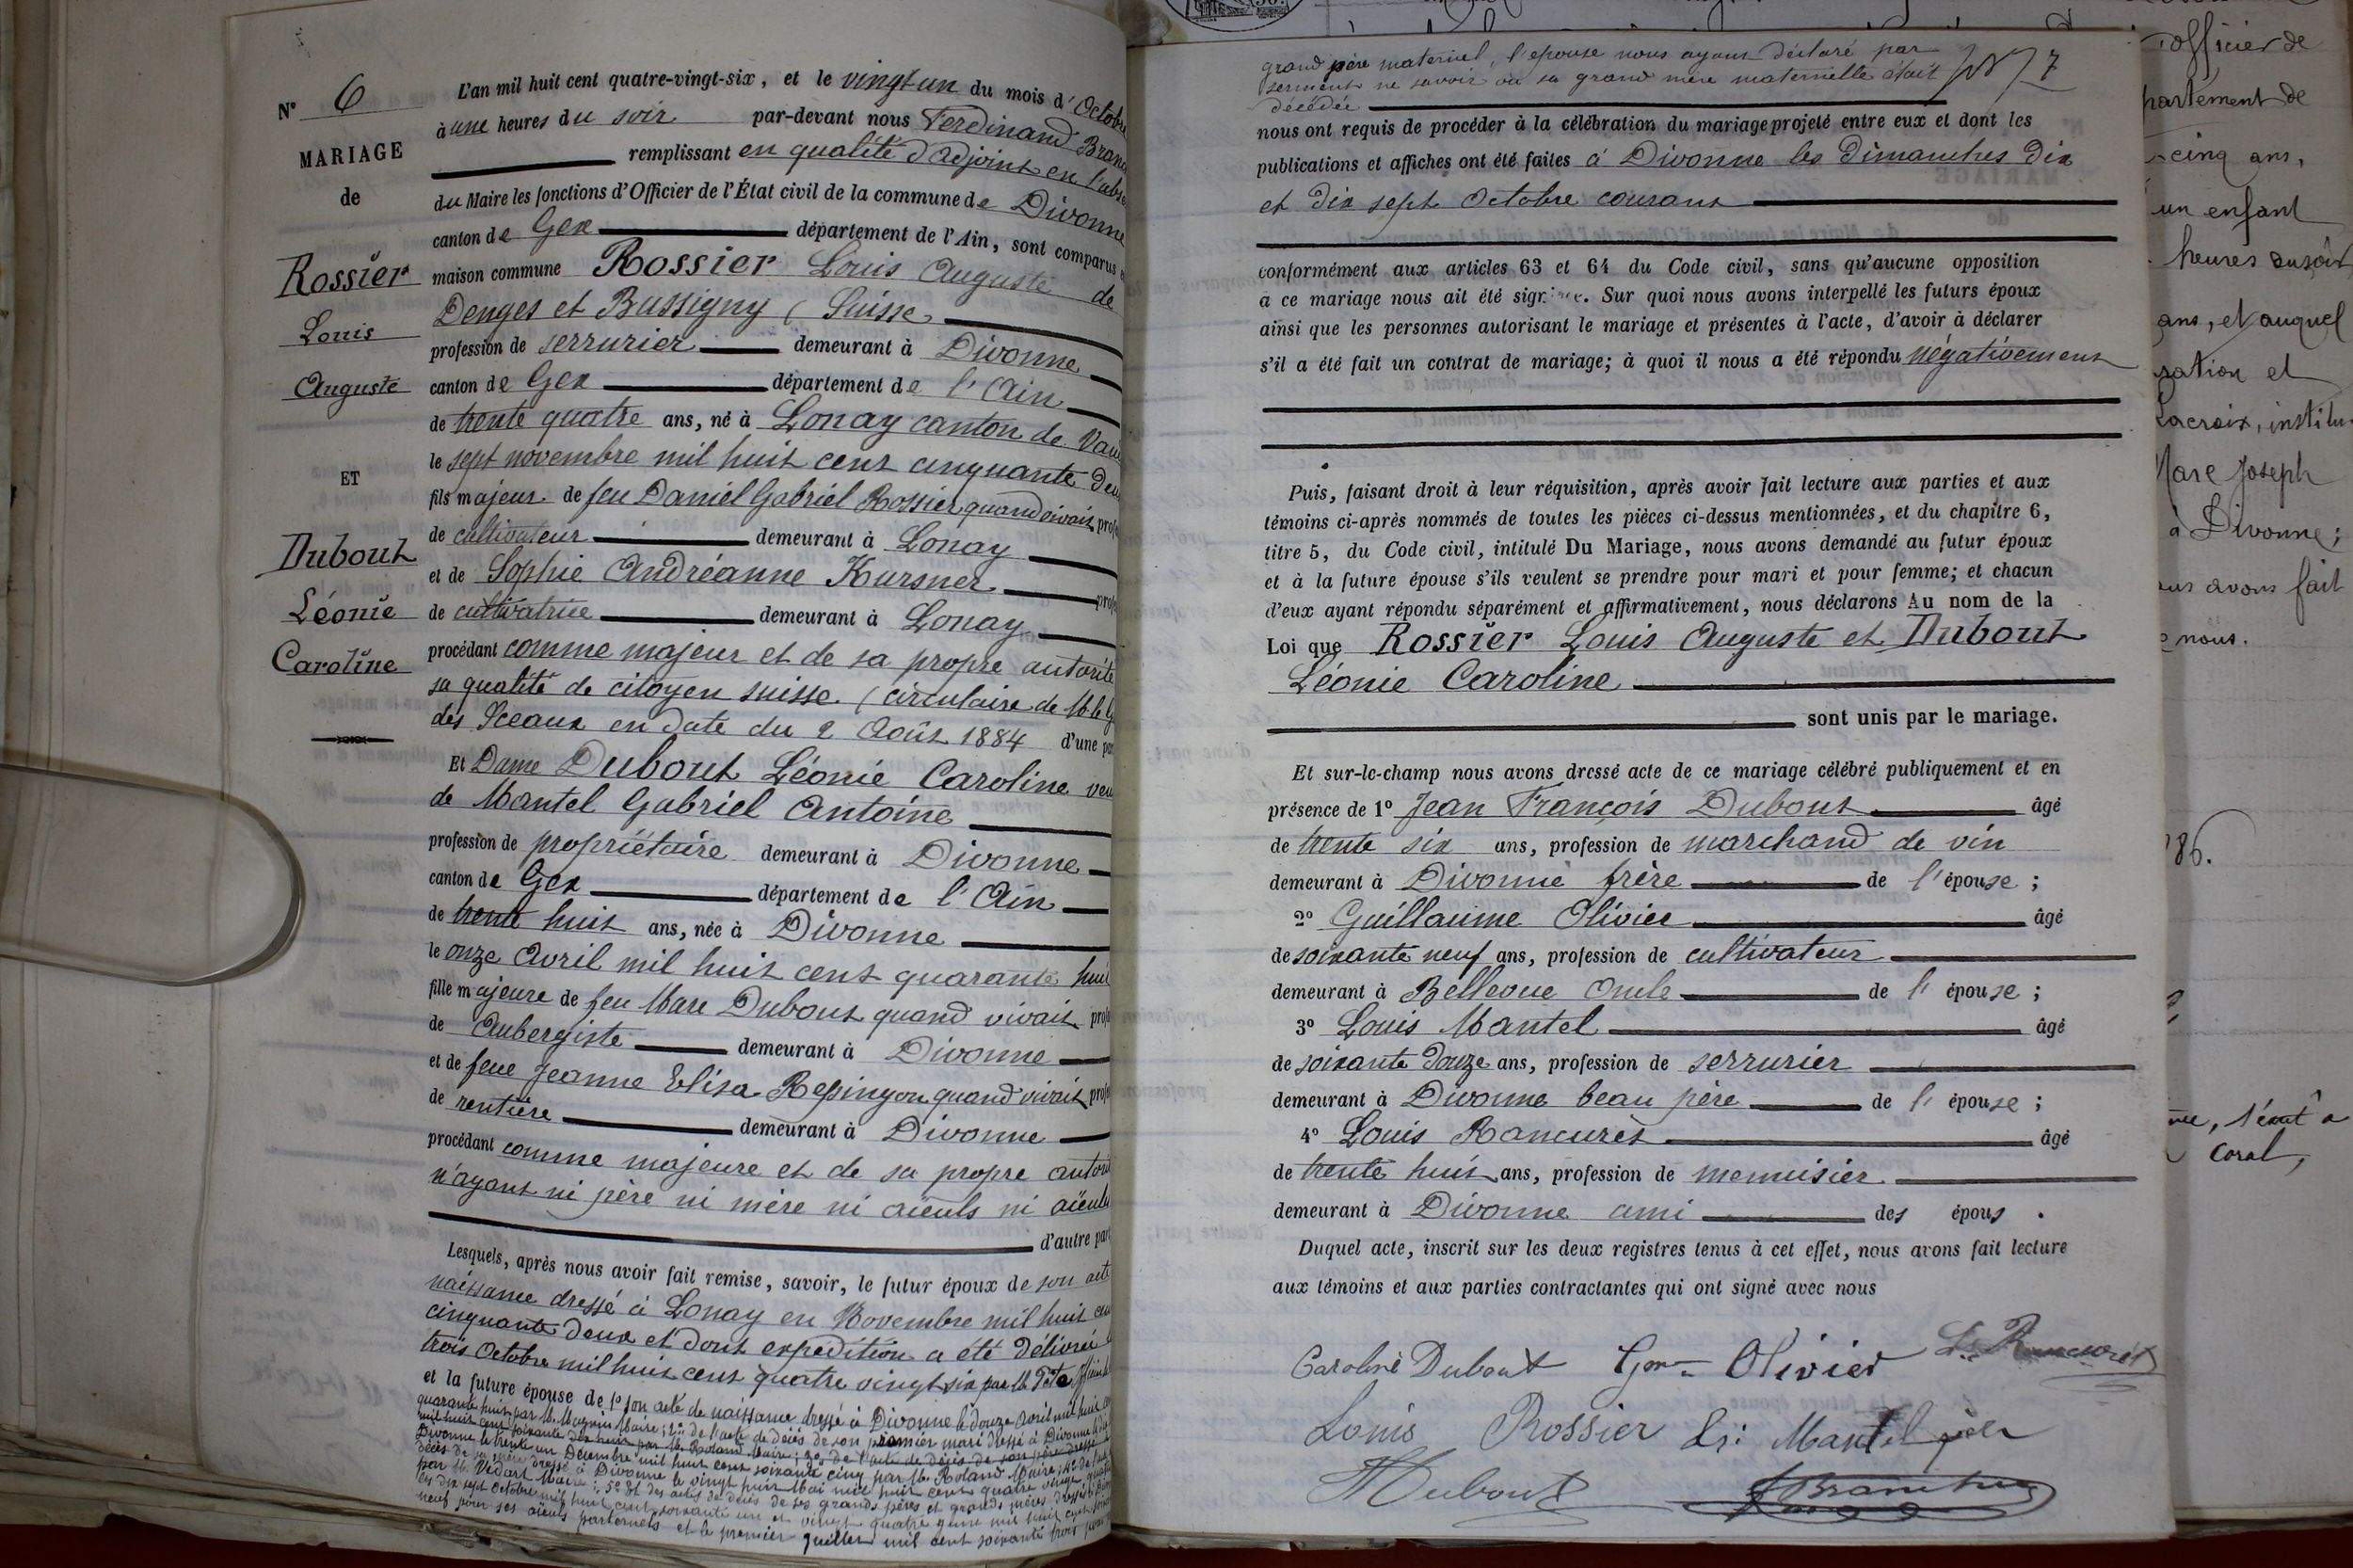 N° 6
MARIAGE
de
Rossier
Louis
Auguste
ET
Dubout
Léonie
Caroline
L'an mil huit cent quatre-vingt-six, et le vingt un du mois d'Octobre
à une heures du soir par-devant nous Ferdinand
remplissant en qualité d'adjoint en
du Maire les fonctions d'Officier de l'État civil de la commune de Divonne
canton de Gex département de l'Ain, sont comparus
maison commune Rossier Louis Auguste de
Denges et Bussigny (Suisse
profession de serrurier demeurant à Divonne
canton de Gex département de l'Ain
de trente quatre ans, né à Lonay canton de
le sept novembre mil huit cent cinquante
fils majeur de feu Daniel Gabriel Rossier quand vivait
de cultivateur demeurant à Lonay
et de Sophie Andréanne Kursner
de cultivatrice demeurant à Lonay
procédant comme majeur et de sa propre autorité
sa qualité de citoyen suisse (circulaire de M. le
des Sceaux en date du 2 Août 1884 d'une
Et Dame Dubout Léonie Caroline
de Mantel Gabriel Antoine
profession de propriétaire demeurant à Divonne
canton de Gex département de l'Ain
de trente huit ans, née à Divonne
le onze Avril mil huit cent quarante
fille majeure de feu Marc Dubout quand vivait
de Aubergiste demeurant à Divonne
et de feue Jeanne Elisa Repingon quand vivait
de rentière demeurant à Divonne
procédant comme majeure et de sa propre
n'ayant ni père ni mère ni aïeuls ni
d'autre
Lesquels, après nous avoir fait remise, savoir, le futur époux de son
naissance dressé à Lonay en Novembre mil huit
cinquante deux et dont expédition a été délivrée
trois Octobre mil huit cent quatre vingt six par M.
et la future épouse de 1° son acte de naissance dressé à Divonne le douze Avril mil huit
quarante huit par M. Maire; 2° de l'acte de décès de son premier mari dressé à Divonne
mil huit cent soixante par M. Roland Maire; 3° de l'acte de décès de son père dressé
Divonne le trente un Décembre mil huit cent soixante cinq par M. Roland Maire;
décès de sa mère dressé à Divonne le vingt huit Mai mil huit cent quatre vingt
par M. Maire; 5° des actes de décès de ses grands pères et grands mères
les dix sept Octobre mil huit cent soixante un et vingt quatre mil huit cent
neuf pour ses aïeuls paternels et le premier Juillet mil cent soixante trois
grand père maternel, l'épouse nous ayant déclaré par
serment ne savoir où sa grand mère maternelle était
décédée
nous ont requis de procéder à la célébration du mariage projeté entre eux et dont les
publications et affiches ont été faites à Divonne les dimanches dix
et dix sept Octobre courant
conformément aux articles 63 et 64 du Code civil, sans qu'aucune opposition
à ce mariage nous ait été signifiée. Sur quoi nous avons interpellé les futurs époux
ainsi que les personnes autorisant le mariage et présentes à l'acte, d'avoir à déclarer
s'il a été fait un contrat de mariage; à quoi il nous a été répondu négativement
Puis, faisant droit à leur réquisition, après avoir fait lecture aux parties et aux
témoins ci-après nommés de toutes les pièces ci-dessus mentionnées, et du chapitre 6,
titre 5, du Code civil, intitulé Du Mariage, nous avons demandé au futur époux
et à la future épouse s'ils veulent se prendre pour mari et pour femme; et chacun
d'eux ayant répondu séparément et affirmativement, nous déclarons Au nom de la
Loi que Rossier Louis Auguste et Dubout
Léonie Caroline
sont unis par le mariage.
Et sur-le-champ nous avons dressé acte de ce mariage célébré publiquement et en
présence de 1° Jean François Dubout âgé
de trente six ans, profession de marchand de vin
demeurant à Divonne frère de l'épouse;
2° Guillaume Olivier âgé
de soixante neuf ans, profession de cultivateur
demeurant à Bellevue Oncle de l'épouse;
3° Louis Mantel âgé
de soixante douze ans, profession de serrurier
demeurant à Divonne beau père de l'épouse;
4° Louis Rancurèt âgé
de trente huit ans, profession de menuisier
demeurant à Divonne ami des épous.
Duquel acte, inscrit sur les deux registres tenus à cet effet, nous avons fait lecture
aux témoins et aux parties contractantes qui ont signé avec nous
Caroline Dubout Olivier Ls Rancurèt
Louis Rossier Ls: Mantel père
Dubout
officier de
partement de
cinq ans,
un enfant
heures du soir
ans, et auquel
ration et
Lacroix, institu
Marc Joseph
à Divonne;
avons fait
nous.
86.
Coral,